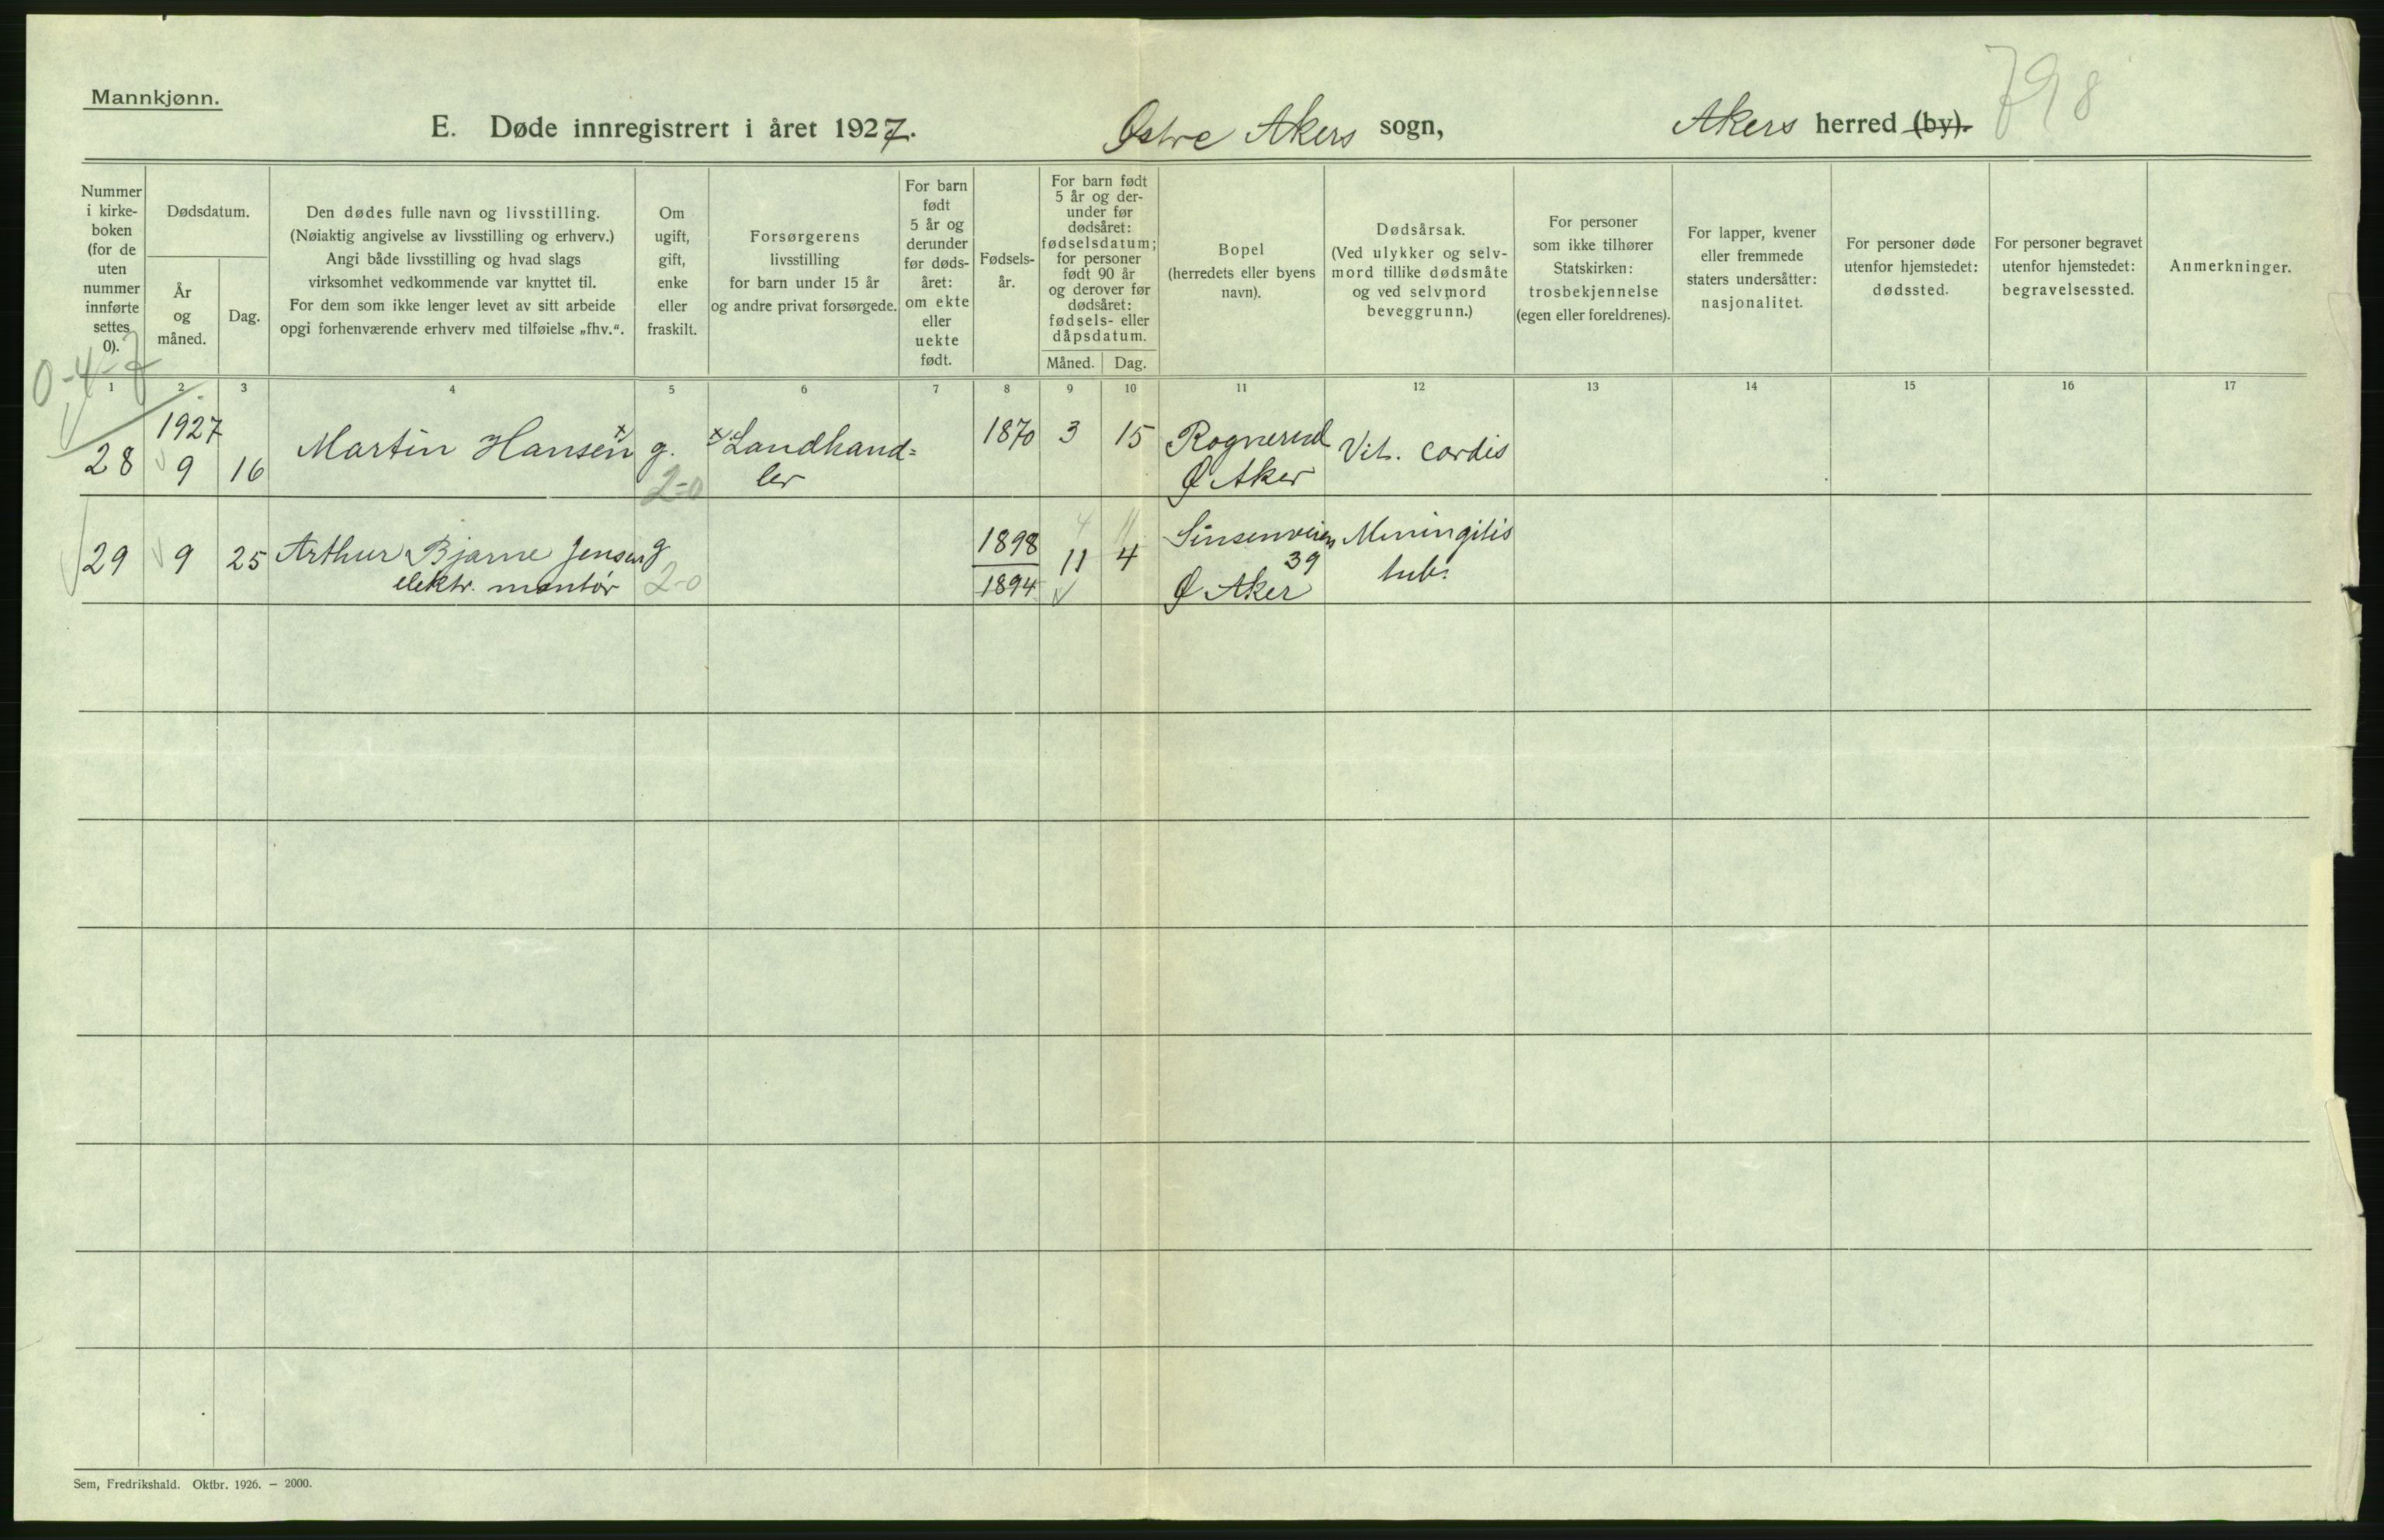 Mannkjønn.
798
E. Døde innregistrert i året 1927. Østre Akers sogn, Akers herred (by).
Nummer
i kirke-
boken
(for de
uten
nummer
innførte
settes
0).
Dødsdatum.
År
og
måned.
Dag.
Den dødes fulle navn og livsstilling.
(Nøiaktig angivelse av livsstilling og erhverv.)
Angi både livsstilling og hvad slags
virksomhet vedkommende var knyttet til.
For dem som ikke lenger levet av sitt arbeide
opgi forhenværende erhverv med tilføielse „fhv.“.
Om
ugift,
gift,
enke
eller
fraskilt.
Forsørgerens
livsstilling
for barn under 15 år
og andre privat forsørgede.
For barn
født
5 år og
derunder
før døds-
året:
om ekte
eller
uekte
født.
Fødsels-
år.
For barn født
5 år og der-
under før
dødsåret:
fødselsdatum;
for personer
født 90 år
og derover før
dødsåret:
fødsels- eller
dåpsdatum.
Måned. Dag.
Bopel
(herredets eller byens
navn).
Dødsårsak.
(Ved ulykker og selv-
mord tillike dødsmåte
og ved selvmord
beveggrunn.)
For personer
som ikke tilhører
Statskirken:
trosbekjennelse
(egen eller foreldrenes).
For lapper, kvener
eller fremmede
staters undersåtter:
nasjonalitet.
For personer døde
utenfor hjemstedet:
dødssted.
For personer begravet
utenfor hjemstedet:
begravelsessted.
Anmerkninger.
0-4-7
1 2 3 4 5 6 7 8 9 10 11 12 13 14 15 16 17
1927
28 9 16 Martin Hansen x/ g. x/ Landhand=
ler
2-0
1870 3 15 Rognerud
Ø Aker
Vit. cordis
29 9 25 Arthur Bjarne Jensen g
elektr. montør 2-0
1898
1894
4 11
11 4
Sinsenveien
39
Ø Aker
Meningitis
tub.
Sem, Fredrikshald. Oktbr. 1926. — 2000.